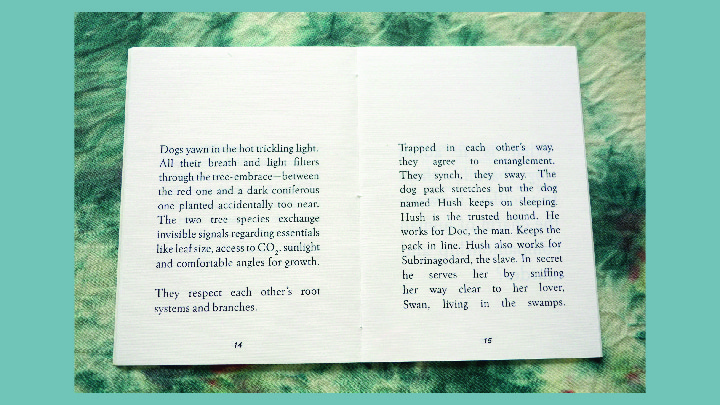 Dogs yawn in the hot trickling light.
All their breath and light filters
through the tree-embrace—between
the red one and a dark coniferous
one planted accidentally too near.
The two tree species exchange
invisible signals regarding essentials
like leaf size, access to CO₂, sunlight
and comfortable angles for growth.
They respect each other's root
systems and branches.
14
Trapped in each other's way,
they agree to entanglement.
They synch, they sway. The
dog pack stretches but the dog
named Hush keeps on sleeping.
Hush is the trusted hound. He
works for Doc, the man. Keeps the
pack in line. Hush also works for
Subrinagodard, the slave. In secret
he serves her by sniffing
her way clear to her lover,
Swan, living in the swamps.
15